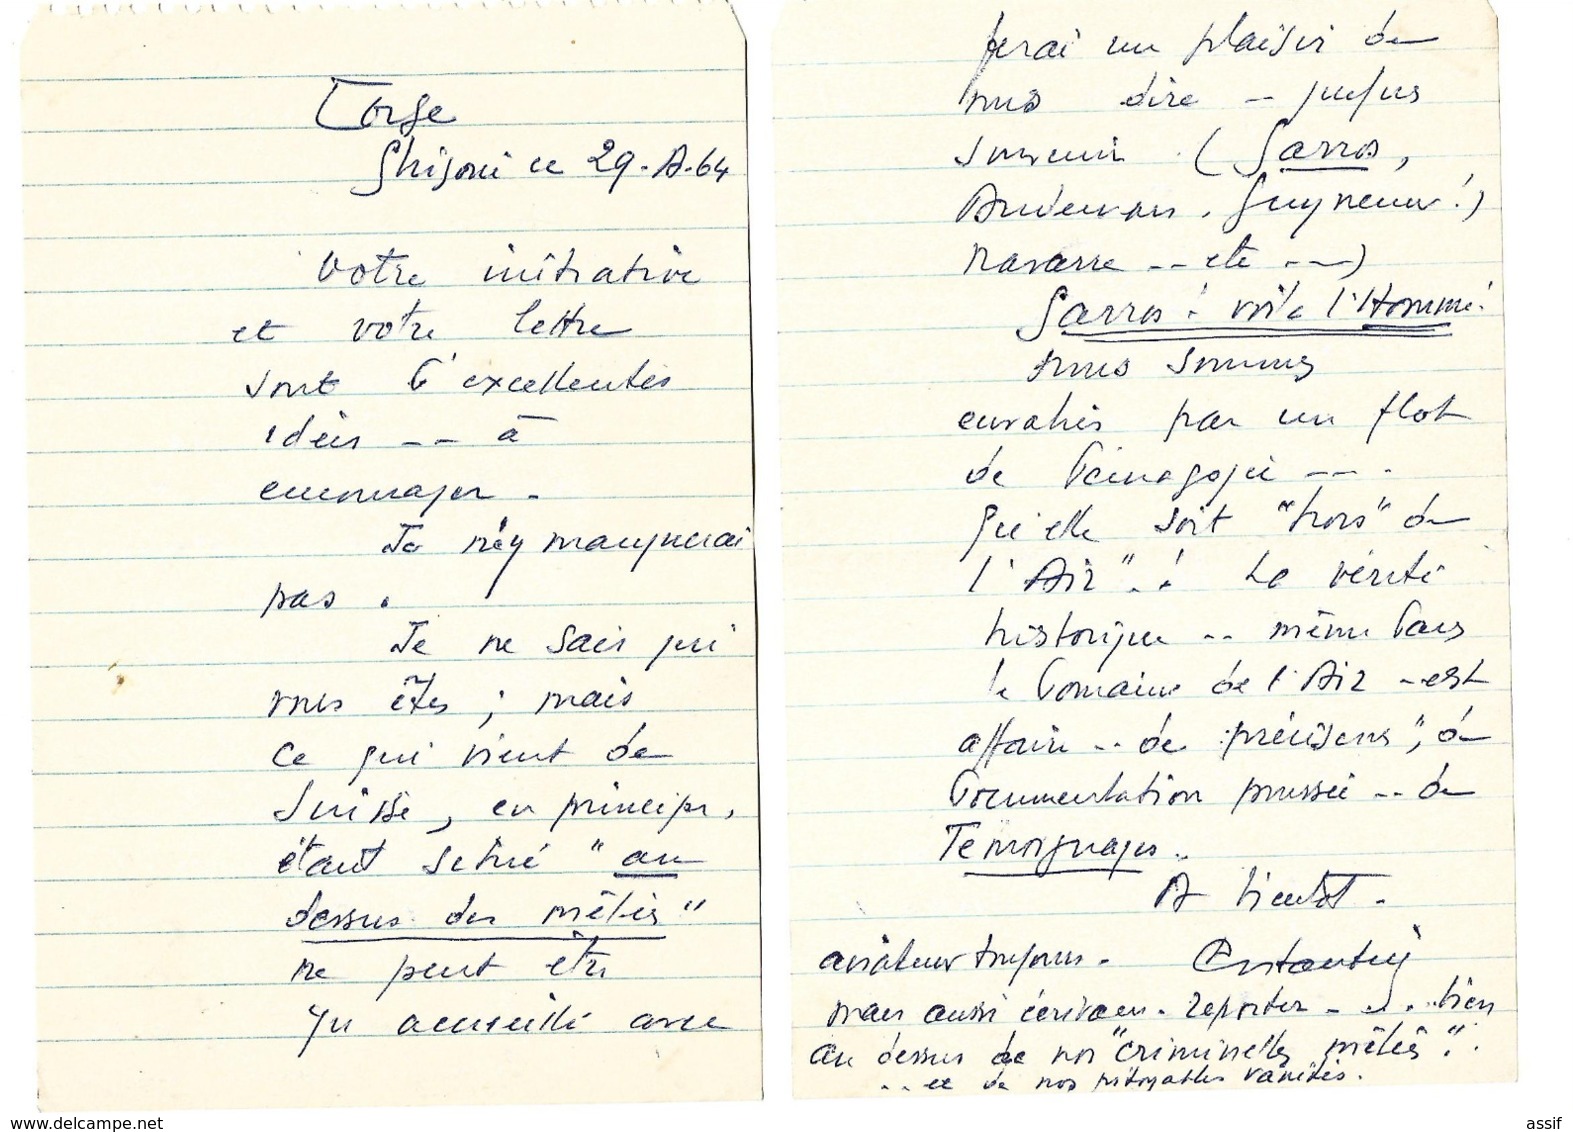 Corse
Ghisoni ce 29.A.64
Votre initiative
et votre lettre
sont d'excellentes
idées -- à
encourager -
Je n'y manquerai
pas .
Je ne sais qui
vous êtes ; mais
ce qui vient de
Suisse, en principe,
étant situé "au
dessus des mêlées"
ne peut être
qu'accueilli avec
ferai un plaisir de
vous dire -- quelques
souvenirs . ( Garros,
Guynemer !)
Navarre -- etc ---)
Garros : voila l'Homme !
nous sommes
envahis par un flot
de Démagogie --- .
Qu'elle soit "hors" de
l'Air" . ! La vérité
historique -- même dans
le Domaine de l'Air - est
affaire -- de précisions", de
Documentation poussée -- de
Témoignages .
A bientôt -
aviateur toujours -
mais aussi écrivain - reporter - .. bien
au dessus de nos "criminelles mêlées" .
-- et de nos pitoyables vanités .
www.delcampe.net
assif